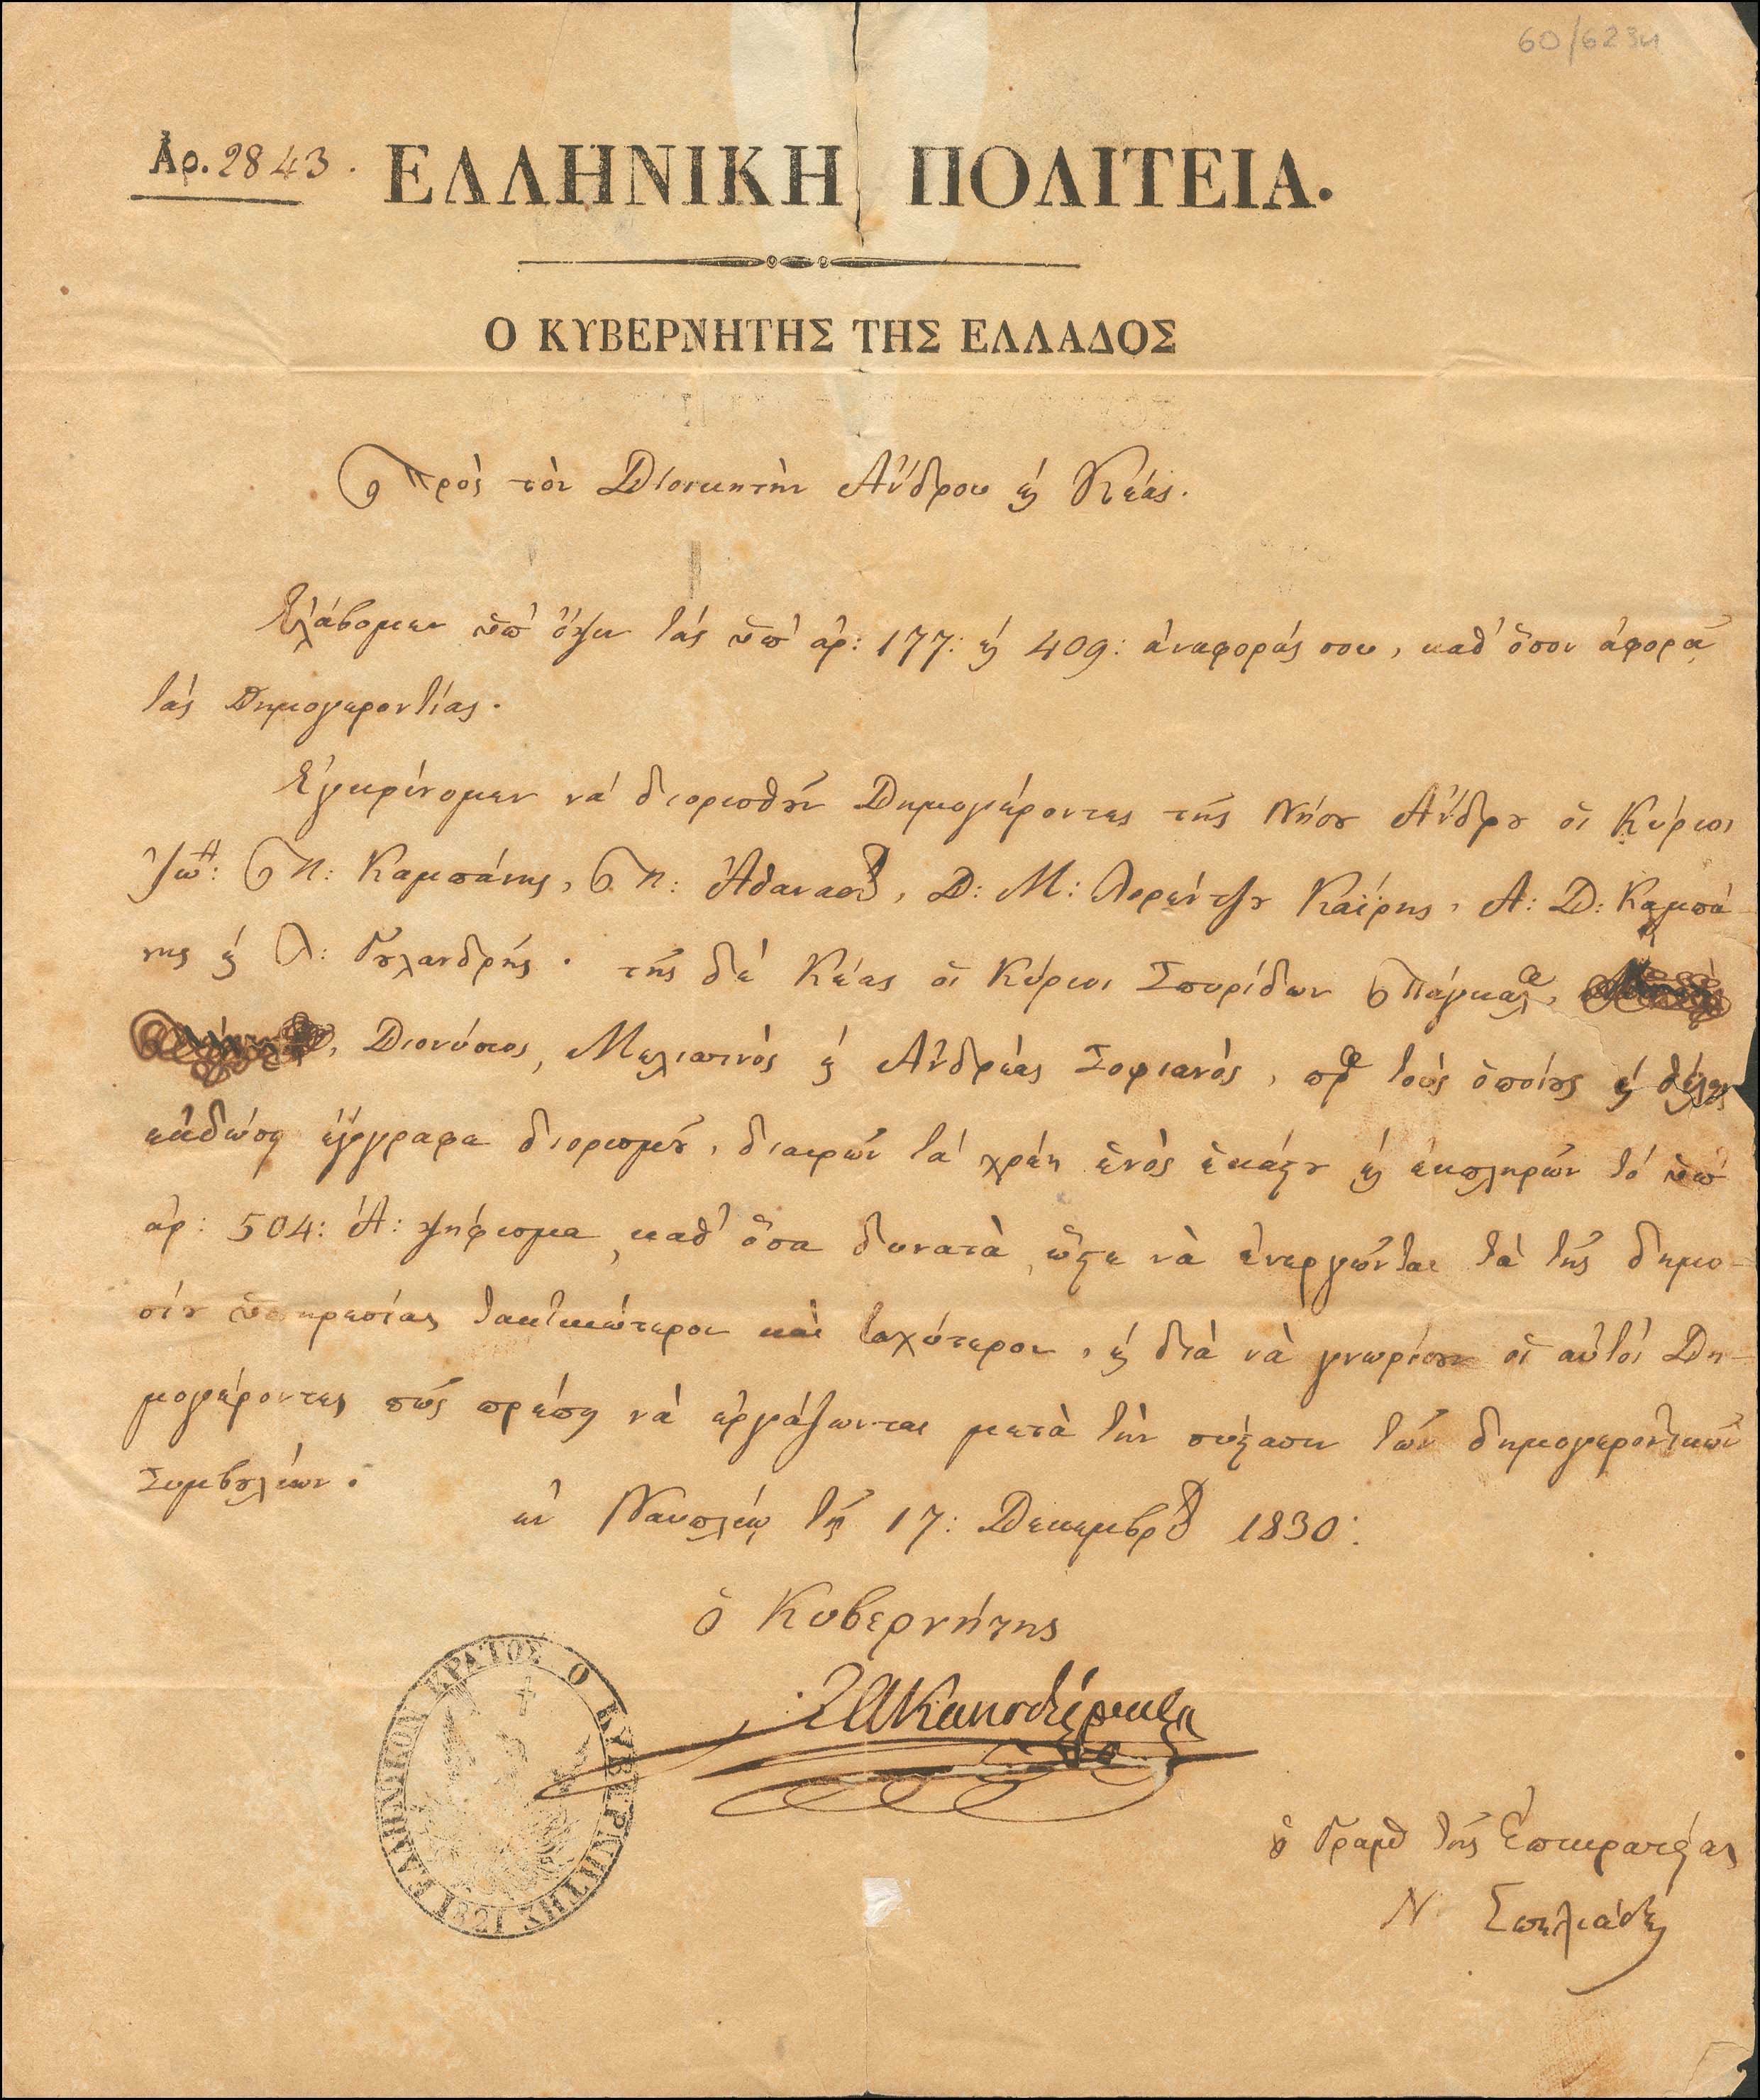 60/623
Ἀρ. 2843.
ΕΛΛΗΝΙΚΗ ΠΟΛΙΤΕΙΑ.
Ο ΚΥΒΕΡΝΗΤΗΣ ΤΗΣ ΕΛΛΑΔΟΣ
Πρὸς τὸν Διοικητὴν Ἄνδρου ϗ Κέας.
Ἐλάβομεν ὑπ' ὄψιν τὰς ὑπ' ἀρ: 177: ϗ 409: ἀναφοράς σου, καθ' ὅσον ἀφορᾷ
τὰς Δημογεροντίας.
Ἐγκρίνομεν νὰ διορισθȣ͂ν Δημογέροντες τῆς Νήσȣ Ἄνδρȣ οἱ Κύριοι
Ἰω: Π: Καμπάνης, Π: Ἀθανασίου, Δ: Μ: Λορέντζȣ Καΐρης, Α: Δ: Καμπά-
νης ϗ Λ: Γȣλανδρής. τῆς δὲ Κέας οἱ Κύριοι Σπυρίδων Πάγκαλος,
Διονύσιος, Μελισινὸς ϗ Ἀνδρέας Σοφιανός, πρὸς τοὺς ὁποίȣς ϗ θέλεις
ἐκδώσῃ ἔγγραφα διορισμȣ͂, διαιρῶν τὰ χρέη ἑνὸς ἑκάϛȣ ϗ ἐκπληρῶν τὸ ὑπ'
ἀρ: 504: Α: ψήφισμα, καθ' ὅσα δυνατὰ, ὥϛε νὰ ἐνεργῶνται τὰ τῆς δημο-
σίȣ ὑπηρεσίας τακτικώτερον καὶ ταχύτερον, ϗ διὰ νὰ γνωρίσȣν οἱ αὐτοὶ Δη-
μογέροντες πῶς πρέπει νὰ ἐργάζωνται μετὰ τὴν σύϛασιν τῶν δημογεροντικῶν
Συμβȣλίων.
ἐν Ναυπλίῳ τῇ 17: Δεκεμβρίου 1830:
ὁ Κυβερνήτης
Ι Α Καποδίστριας
ΕΛΛΗΝΙΚΟΝ ΚΡΑΤΟΣ Ο ΚΥΒΕΡΝΗΤΗΣ 1821
ὁ Γραμ τῆς Ἐπικρατείας
Ν. Σπηλιάδης